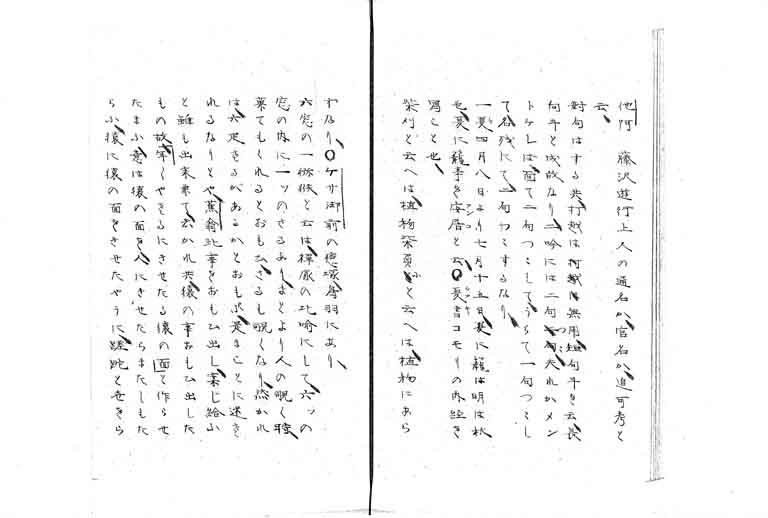 他阿 藤沢遊行上人の通名か官名か追可考と
云
対句はする共打越は打越は無用短句斗き云長
句斗と成故なり二吟には二句つゝ夫れかメン
トケレは面て二句つゝしてうらて一句つゝし
て名残にて二句つゝするなり
一夏四月八日より七月十五日夏に籠は明は秋
也夏に籠事を安居と云夏書コモリの内経を
写こと也
柴刈と云へは植物柴負と云へは植物にあら
すなり〇ケサ御前の恋塚鳥羽にあり
六窓の一猕猴と云は禅家の比喩にして六ッの
窓の内に一ッのさるありまとより人の覗く時
菓てもくれるとおもひさるも覗くなり然かれ
は六疋さるかあるかとおもふ是まことに迷さ
れるなりとや蕉翁此事をおもひ出し案じ給ふ
と雖も出来兼て云かれ共猿の事おもひ出した
もの故年〱やさるにきせたる猿の面と作らせ
たまふ意は猿の面を人にきせたらまたしもた
らふ猿に猿の面をきせたやうに蹉跎とせきら